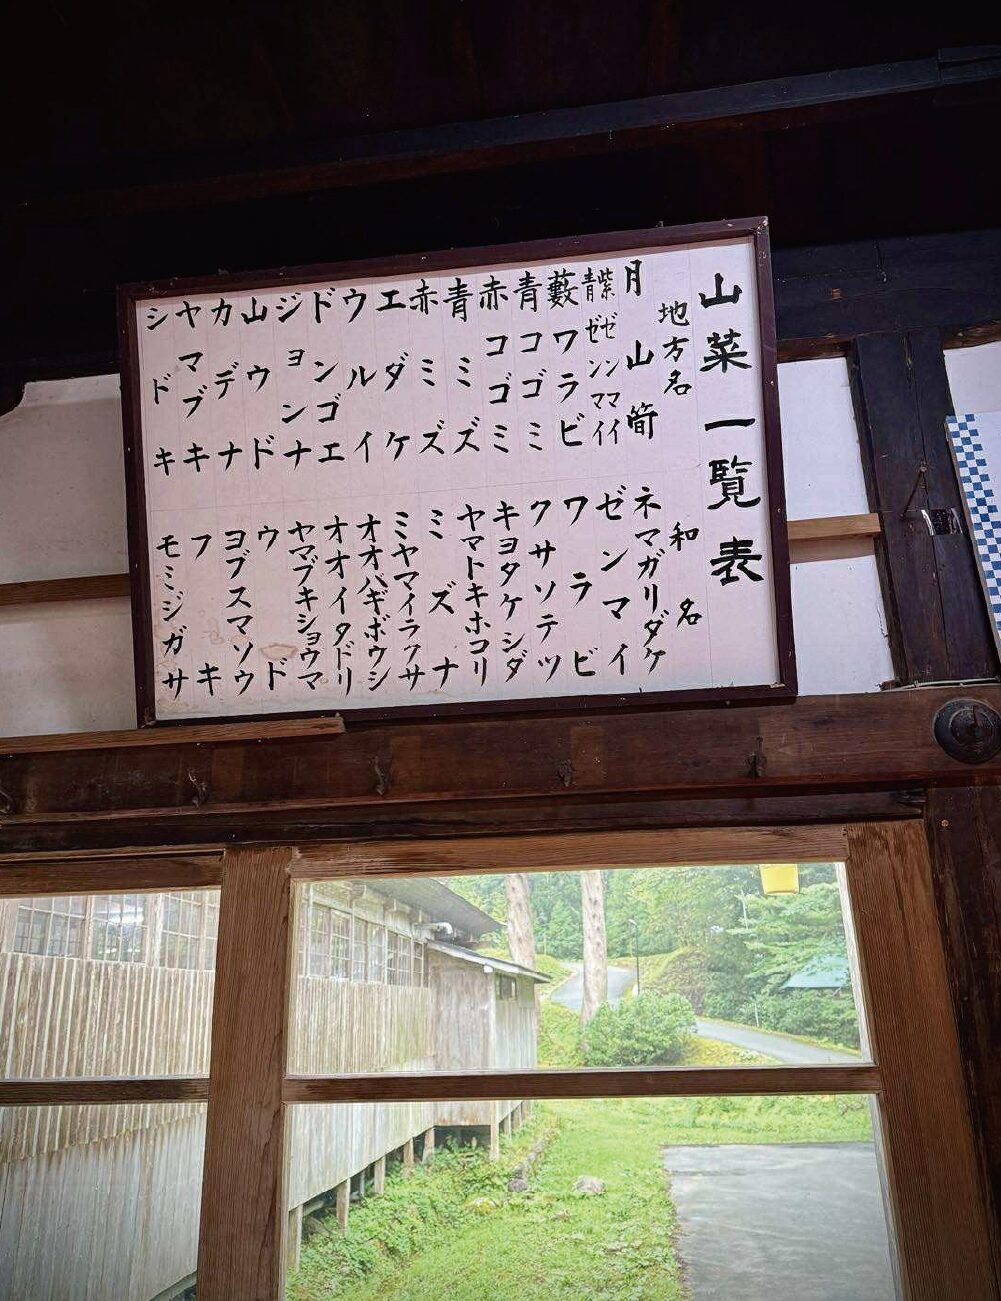 山菜一覧表
地方名 和名
月山筍 ネマガリダケ
紫ゼンマイ 青ゼンマイ ゼンマイ
藪ワラビ ワラビ
青コゴミ クサソテツ
赤コゴミ キヨタケシダ
青ミズ ヤマトキホコリ
赤ミズ ミズナ
エダケ ミヤマイラクサ
ウルイ オオバギボウシ
ドンゴエ オオイタドリ
ジョンナ ヤマブキショウマ
山ウド ウド
カデナ ヨブスマソウ
ヤマブキ フキ
シドキ モミジガサ